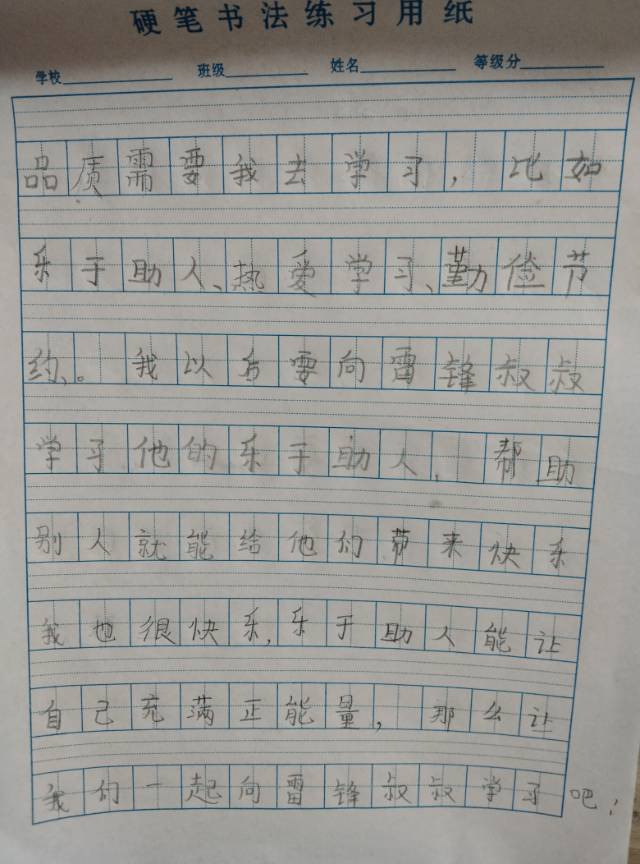 硬笔书法练习用纸
学校 班级 姓名 等级分
品质需要我去学习，比如
乐于助人、热爱学习、勤俭节
约、。我以后要向雷锋叔叔
学习他的乐于助人，帮助
别人就能给他们带来快乐
我也很快乐，乐于助人能让
自己充满正能量，那么让
我们一起向雷锋叔叔学习吧！